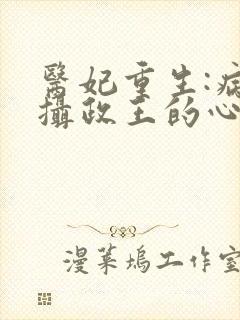 醫妃重生:病
攝政王的心
漫菓塢工作室